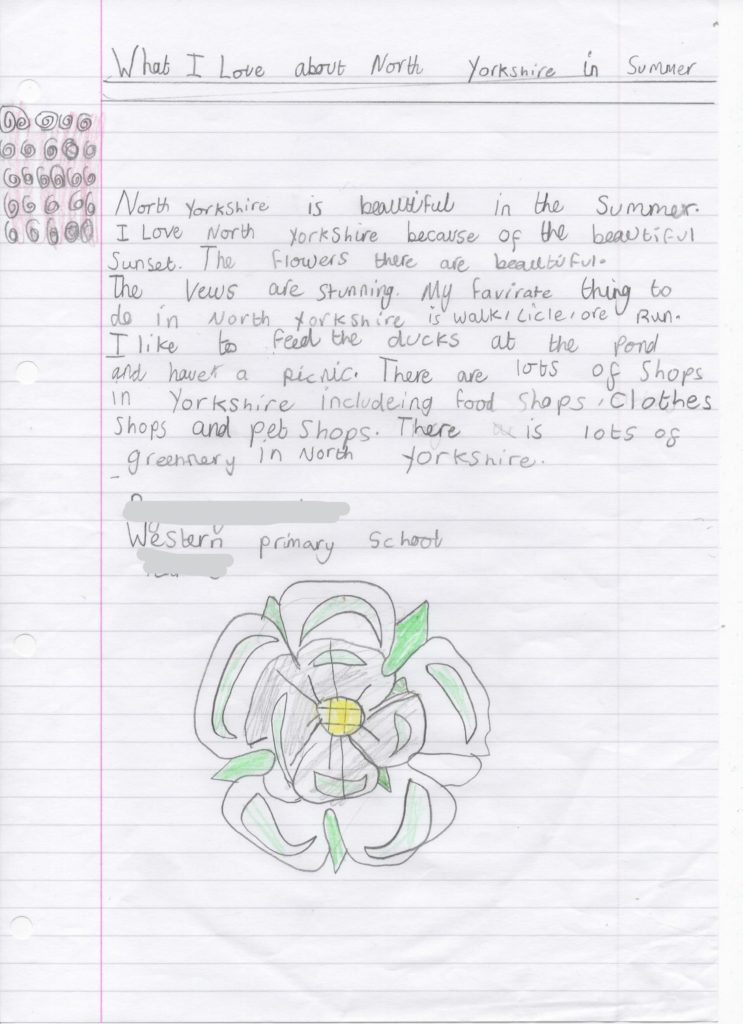 What I Love about North Yorkshire in Summer
North Yorkshire is beautiful in the Summer.
I Love North Yorkshire because of the beautiful
Sunset. The flowers there are beautiful.
The Vews are stunning. My favirate thing to
do in North Yorkshire is walk, Cicle, ore Run.
I like to feed the ducks at the pond
and have a picnic. There are lots of Shops
in Yorkshire includeing food Shops, Clothes
Shops and pet Shops. There is lots of
greennery in North Yorkshire.
Western primary School